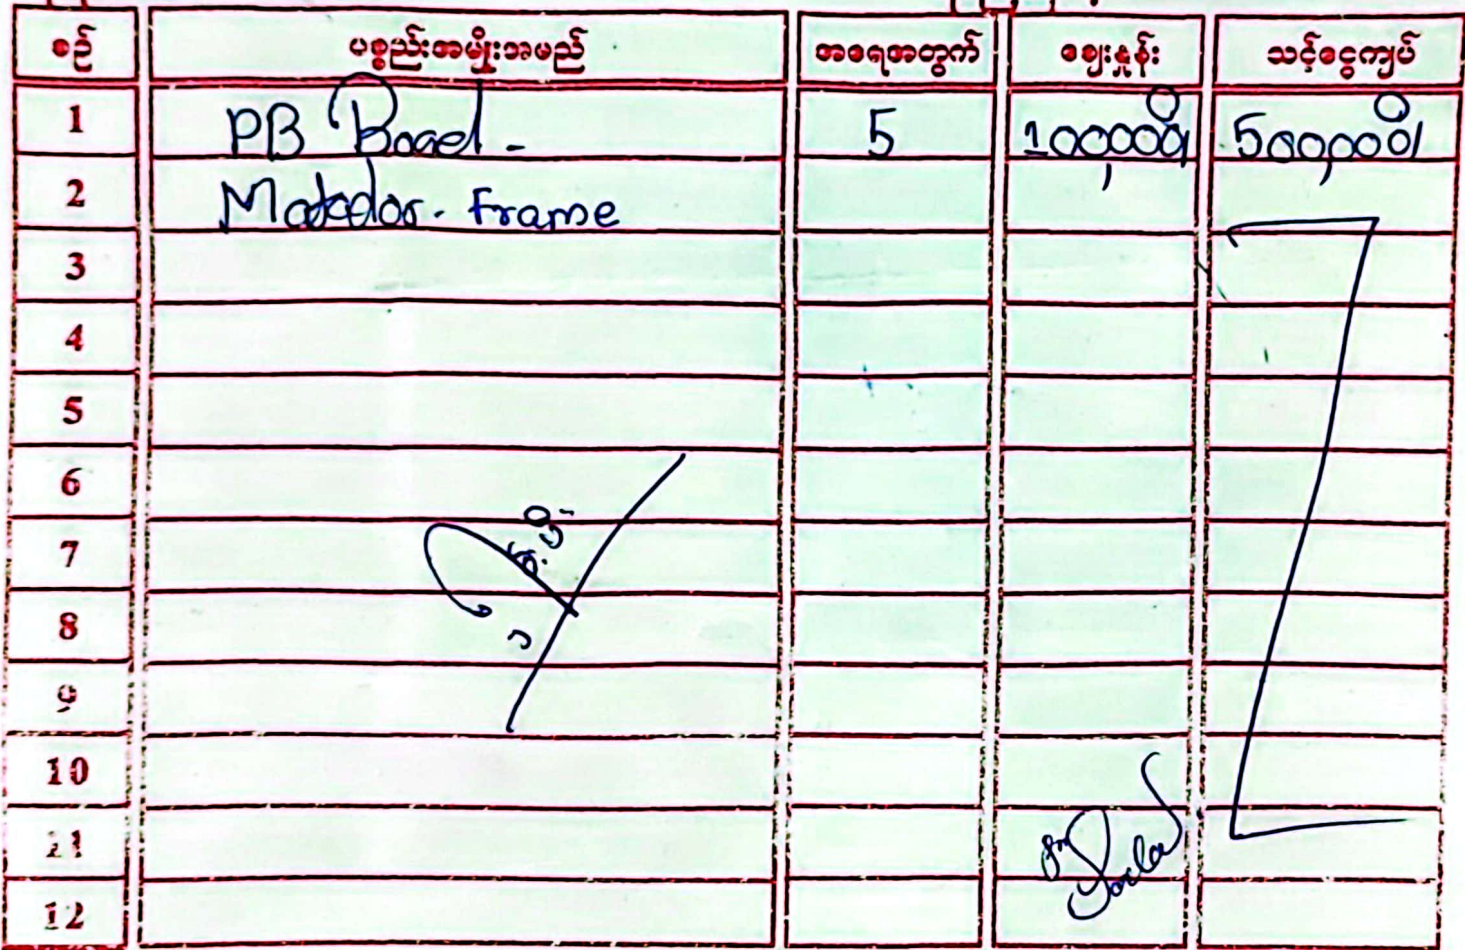 စဉ် ပစ္စည်းအမျိုးအမည် အရေအတွက် ဈေးနှုန်း သင့်ငွေကျပ်
1 PB 5 100,000/ 500,000/
2 Matador. Frame
3
4
5
6
7
8
9
10
11
12